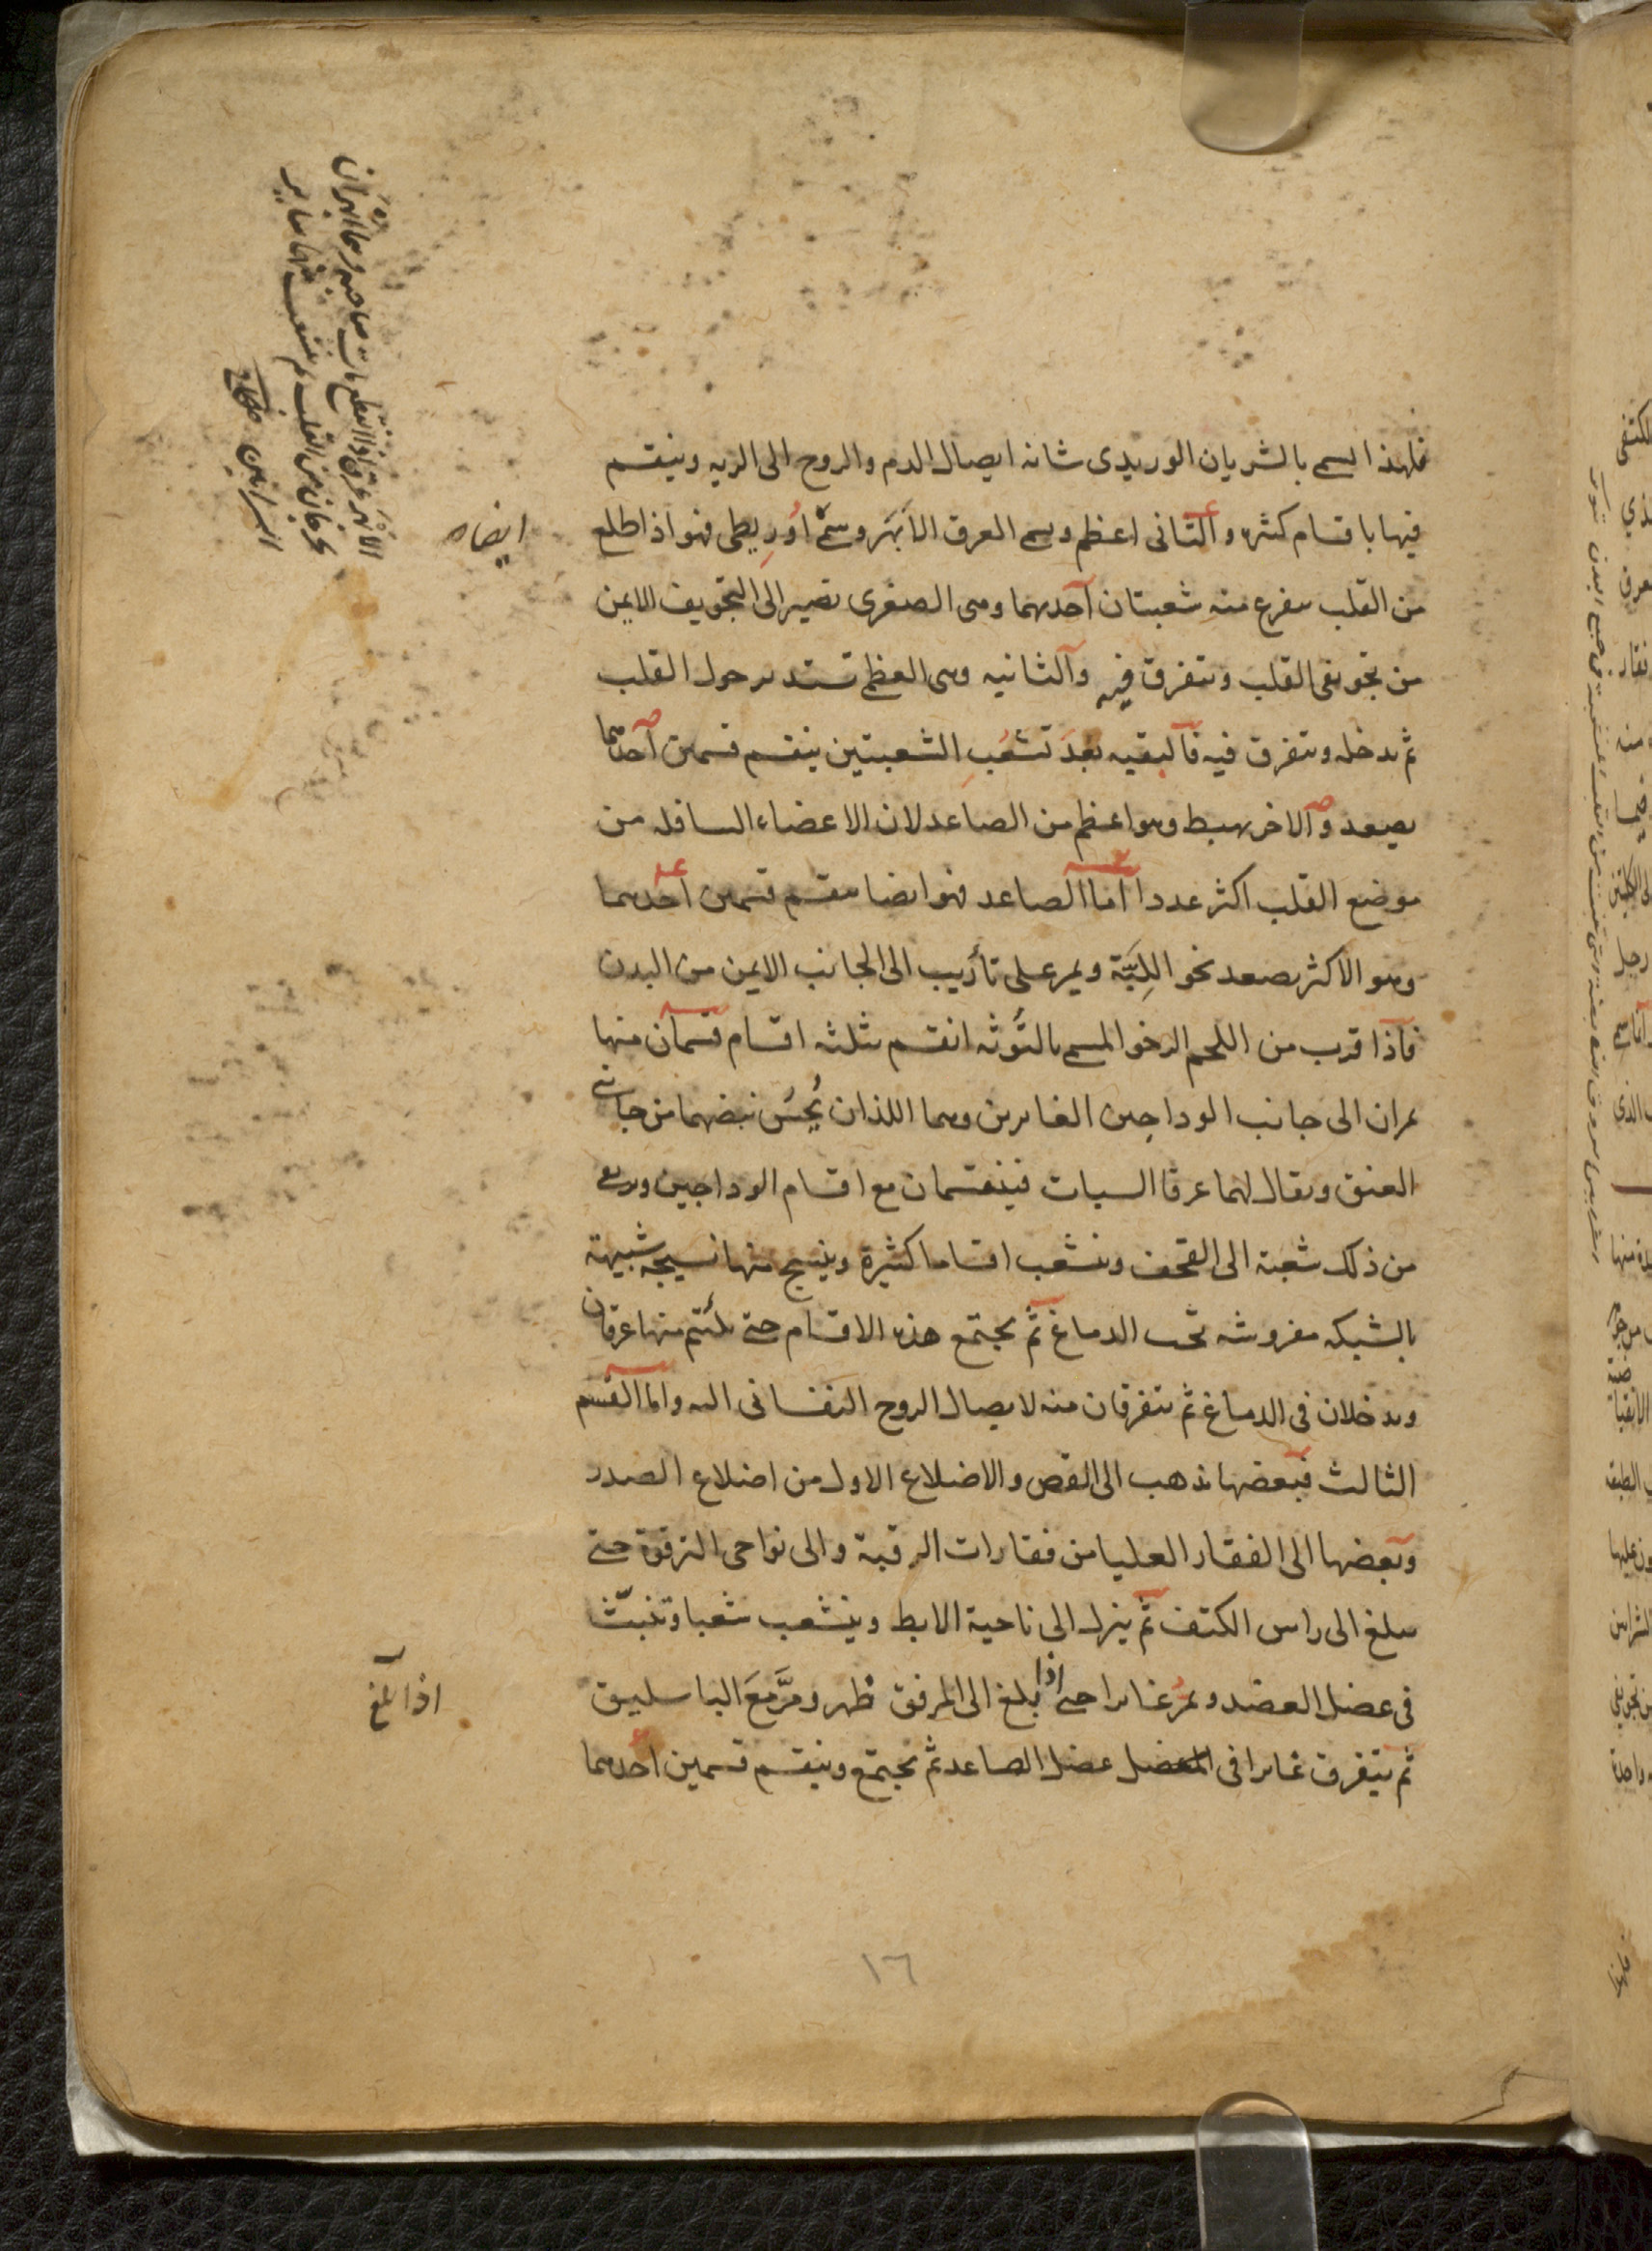 فلهذا يسمى بالشريان الوريدى شانه ايصال الدم والروح الى الريه وينقسم
فيها باقسام كثره والثانى اعظم ويسمى العرق الأبهَر وسُمِّىَ اوُرِيطى فهو اذا طلع
من القلب يتفرع منه شعبتان آحديهما وهى الصغرى تصير الى التجويف الايمن
من تجويفى القلب وتتفرق فيه وآلثانيه وهى العظمى تستدير حول القلب
ثم يدخله ويتفرق فيه فآلبقيه بعدَ تشعُبِ الشعبتين ينقسم قسمين آحدهما
يصعد وآلاخر يهبط وهو اعظم من الصاعد لان الاعضاء السافله من
موضع القلب اكثر عددا اما الصاعد فهو ايضا ينقسم قسمين احدهما
وهو الاكثر يصعد نحو اللِبَّة ويمر على تأريب الى الجانب الايمن من البدن
فآذا قرب من اللحم الرخو المسمى بالتُّوثه انقسم بثلثه اقسام قسمان منها
يمران الى جانب الوداجين الغايرين وهما اللذان يُحِسُّ نبضهما من جانبى
العنق ويقال لهما عرقا السبات فينقسمان مع اقسام الوداجين
من ذلك شعبة الى القحف وينشعب اقساما كثيرة وينسج منها نسيجه شبيهة
بالشبكه مفروشه تحت الدماغ ثم يجتمع هذه الاقسام حتى يلتئم منها عرقان
ويدخلان فى الدماغ ثم يتفرقان منه لايصال الروح النفسانى اليه واما القسم
الثالث فبعضها يذهب الى القص والاضلاع الاول من اضلاع الصدر
وبعضها الى الفقار العليا من فقارات الرقبة والى نواحى الترقوة حتى
يبلغ الى راس الكتف ثم ينزل الى ناحية الابط وينشعب شعبا وتنبثّ
فى عضل العضد ويمرّ غايرا حتى اذا بلغ الى المرفق ظهر ومرَّ معَ الباسليق
ثم يتفرق غايرا فى عضل الصاعد ثم يجتمع وينقسم قسمين احدهما
ايضاه
اذا بلغ
الأبهر عرق اذا انقطع مات صاحبه وهما ابهران
يخرجان من القلب ثم يتشعب منهما ساير
الشرايين صحاح
١٦